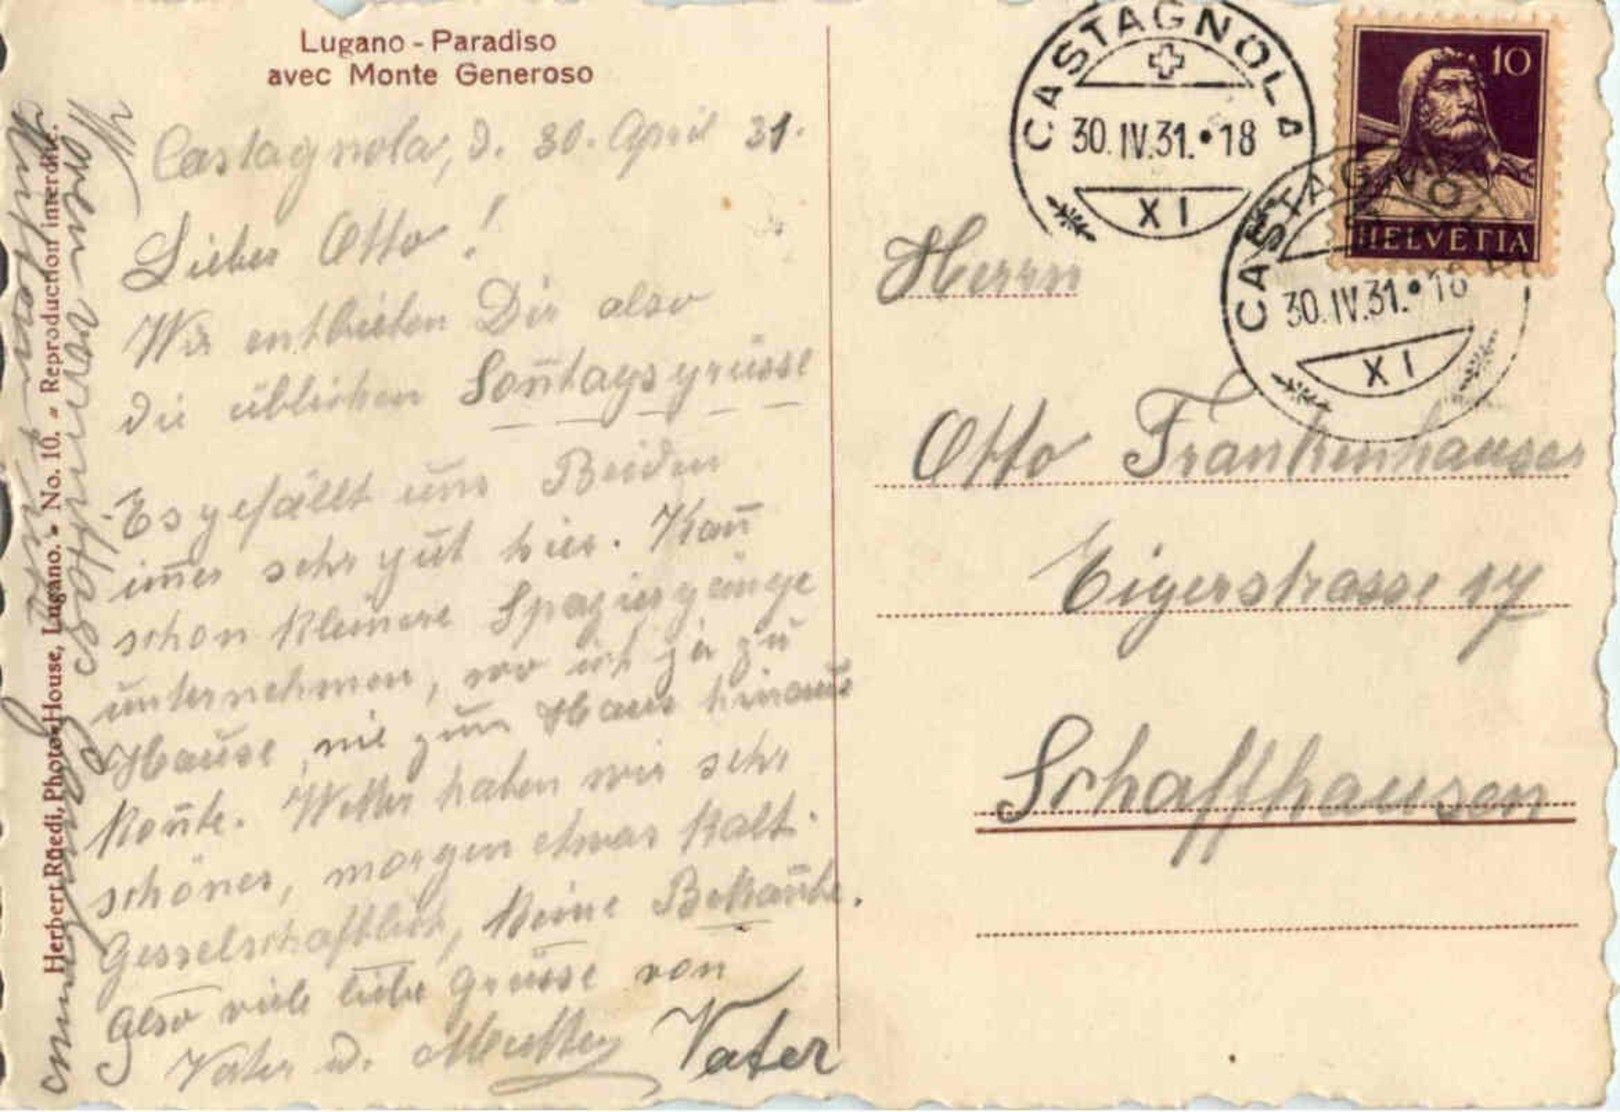 Lugano - Paradiso
avec Monte Generoso
Castagnola, d. 30. April 31.
Lieber Otto!
Wir entbieten Dir also
die üblichen Son̄tagsgrüsse
Es gefällt uns Beiden
im̄er sehr gut hier. Kan̄
schon kleinere Spaziergänge
unternehmen, wo ich ja zu
Hause, nie zum Haus hinaus
kon̄te. Wetter haben wir sehr
schönes, morgen etwas kalt.
Gesselschaftlich, keine Bekan̄te.
Also viele liebe Grüsse von
Vater u. Mutter
Vater
Herbert Rüedi, Photo-House, Lugano. - No. 10. - Reproduction interdite.
CASTAGNOLA
30.IV.31.•18
XI
CASTAGNOLA
30.IV.31.•18
XI
10
HELVETIA
Herrn
Otto Frankenhauser
Eigerstrasse 17
Schaffhausen